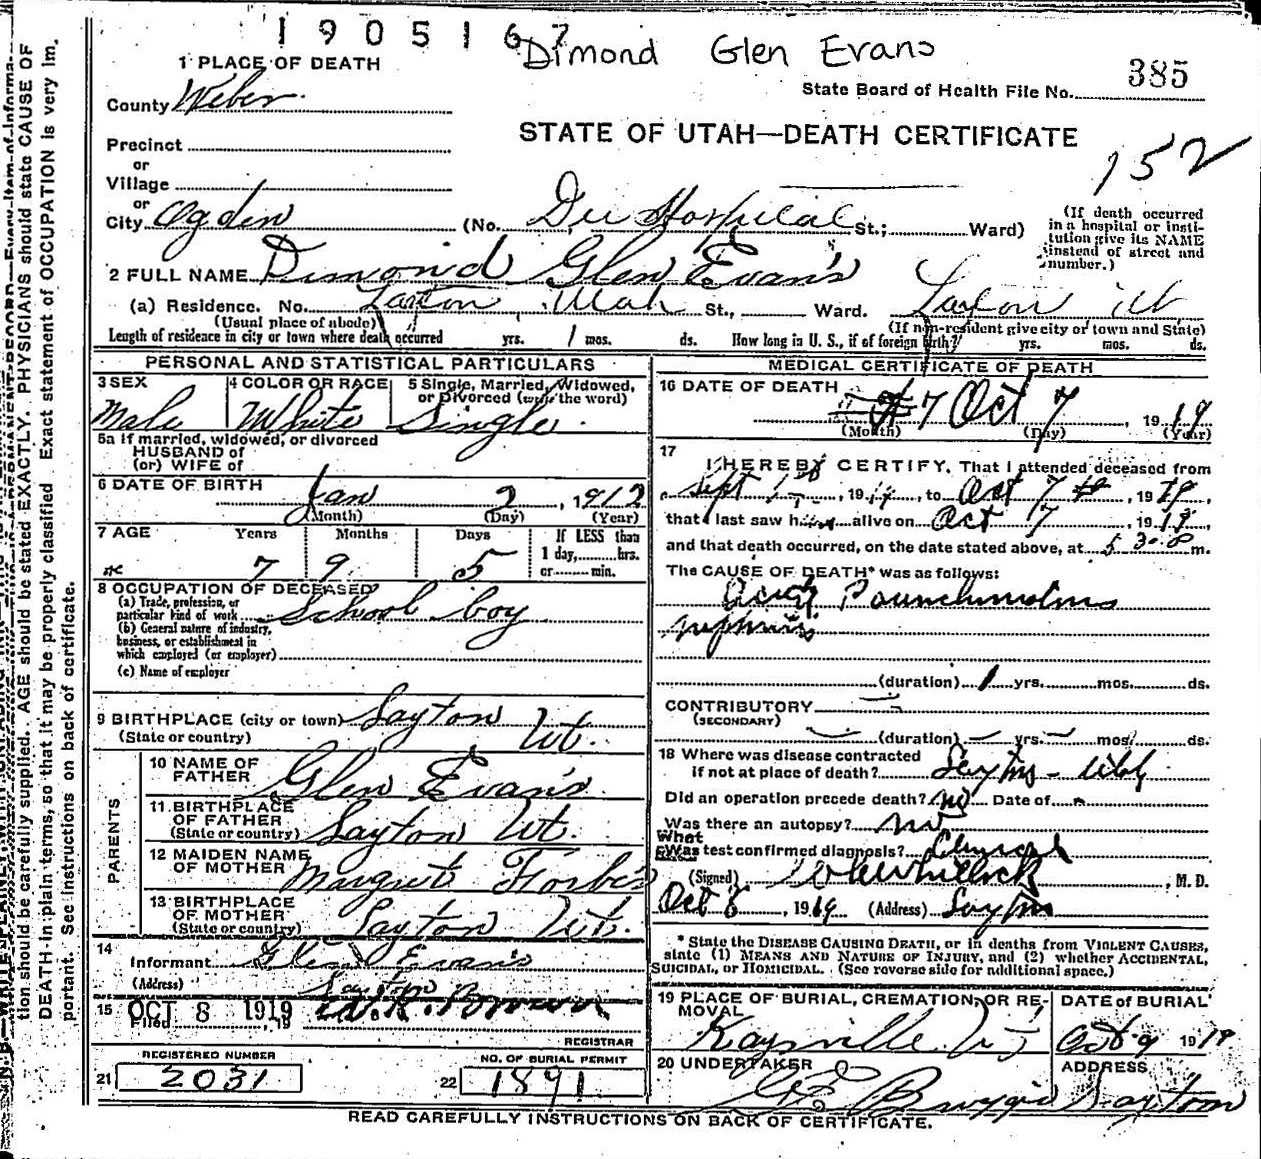 1905167
Dimond Glen Evans
1 PLACE OF DEATH
County Weber
State Board of Health File No. 385
STATE OF UTAH—DEATH CERTIFICATE
152
Precinct
or
Village
or
City Ogden (No. Dee Hospital St.; Ward)
(If death occurred in a hospital or insti-
tution give its NAME
instead of street and
number.)
2 FULL NAME Dimond Glen Evan's
(a) Residence. No. Layton, Utah St., Ward. Layton Ut
(Usual place of abode)
(If non-resident give city or town and State)
Length of residence in city or town where death occurred yrs. 1 mos. ds. How long in U. S., if of foreign birth? yrs. mos. ds.
PERSONAL AND STATISTICAL PARTICULARS
3 SEX
Male
4 COLOR OR RACE
White
5 Single, Married, Widowed,
or Divorced (write the word)
Single
5a If married, widowed, or divorced
HUSBAND of
(or) WIFE of
6 DATE OF BIRTH
Jan 2, 1912
(Month) (Day) (Year)
7 AGE Years Months Days
7 9 5
If LESS than
1 day, hrs.
or min.
8 OCCUPATION OF DECEASED
(a) Trade, profession, or
particular kind of work School boy
(b) General nature of industry,
business, or establishment in
which employed (or employer)
(c) Name of employer
9 BIRTHPLACE (city or town) Layton
(State or country) Ut.
PARENTS
10 NAME OF
FATHER Glen Evan's
11 BIRTHPLACE
OF FATHER
(State or country) Layton Ut.
12 MAIDEN NAME
OF MOTHER Margret Forbes
13 BIRTHPLACE
OF MOTHER
(State or country) Layton Ut.
14
Informant Glen Evan's
(Address) Layton
15 OCT 8 1919
Filed , 19
REGISTRAR
REGISTERED NUMBER
21 2031
NO. OF BURIAL PERMIT
22 1891
MEDICAL CERTIFICATE OF DEATH
16 DATE OF DEATH
7 Oct 7 1919
(Month) (Day) (Year)
17
I HEREBY CERTIFY, That I attended deceased from
Sept 1st, 1919, to Oct 7, 1919,
that I last saw him alive on Oct 7, 1919,
and that death occurred, on the date stated above, at 5 30 P m.
The CAUSE OF DEATH* was as follows:
nephritis
(duration) 1 yrs. mos. ds.
CONTRIBUTORY
(SECONDARY)
(duration) yrs. mos. ds.
18 Where was disease contracted
if not at place of death? Layton - Utah
Did an operation precede death? no Date of
Was there an autopsy? no
What
Was test confirmed diagnosis? Clinical
(Signed) , M. D.
Oct 8, 1919 (Address) Layton
* State the DISEASE CAUSING DEATH, or in deaths from VIOLENT CAUSES,
state (1) MEANS AND NATURE OF INJURY, and (2) whether ACCIDENTAL,
SUICIDAL, or HOMICIDAL. (See reverse side for additional space.)
19 PLACE OF BURIAL, CREMATION, OR RE-
MOVAL
Kaysville Ut
DATE of BURIAL
Oct 9 1919
20 UNDERTAKER
ADDRESS
Layton
READ CAREFULLY INSTRUCTIONS ON BACK OF CERTIFICATE.
tion should be carefully supplied. AGE should be stated EXACTLY. PHYSICIANS should state CAUSE OF
DEATH in plain terms, so that it may be properly classified Exact statement of OCCUPATION is very im.
portant. See instructions on back of certificate.